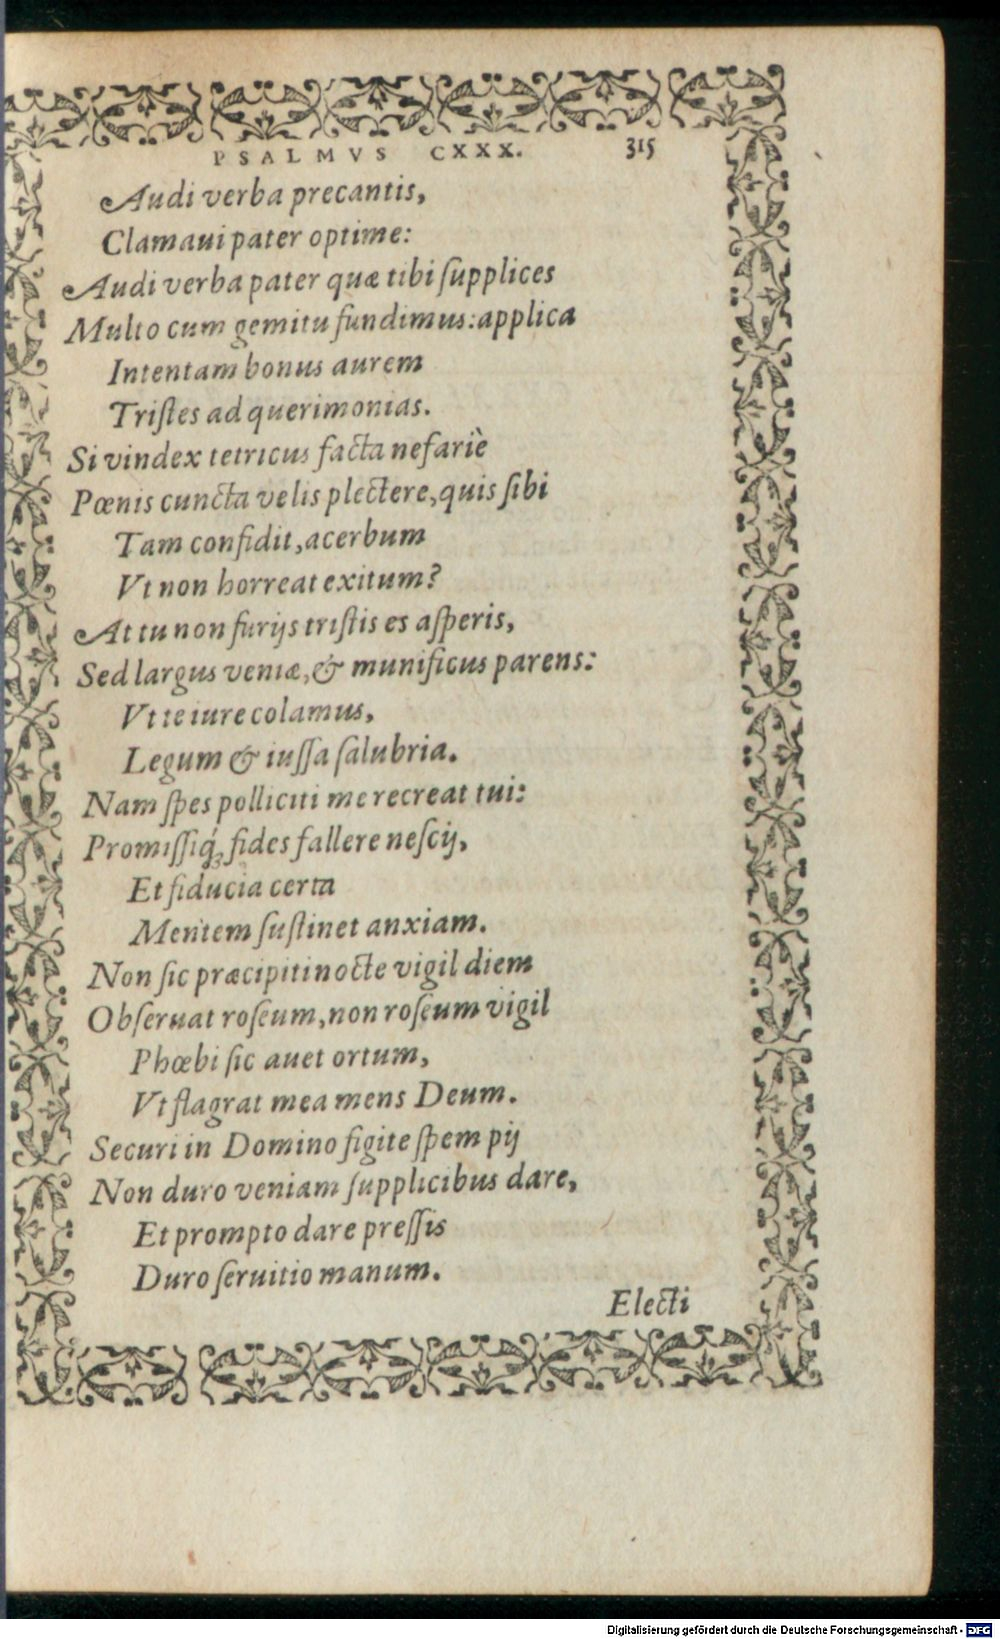 PSALMVS CXXX. 315
Audi verba precantis,
Clamaui pater optime:
Audi verba pater quæ tibi ſupplices
Multo cum gemitu fundimus: applica
Intentam bonus aurem
Triſtes ad querimonias.
Si vindex tetricus facta nefariè
Pœnis cuncta velis plectere, quis ſibi
Tam confidit, acerbum
Vt non horreat exitum?
At tu non furijs triſtis es aſperis,
Sed largus veniæ, & munificus parens:
Vt te iure colamus,
Legum & iuſſa ſalubria.
Nam ſpes polliciti me recreat tui:
Promiſſiq́ꝫ fides fallere neſcij,
Et fiducia certa
Mentem ſuſtinet anxiam.
Non ſic præcipiti nocte vigil diem
Obſeruat roſeum, non roſeum vigil
Phœbi ſic auet ortum,
Vt flagrat mea mens Deum.
Securi in Domino figite ſpem pij
Non duro veniam ſupplicibus dare,
Et prompto dare preſſis
Duro ſeruitio manum.
Electi
Digitalisierung gefördert durch die Deutsche Forschungsgemeinschaft - DFG